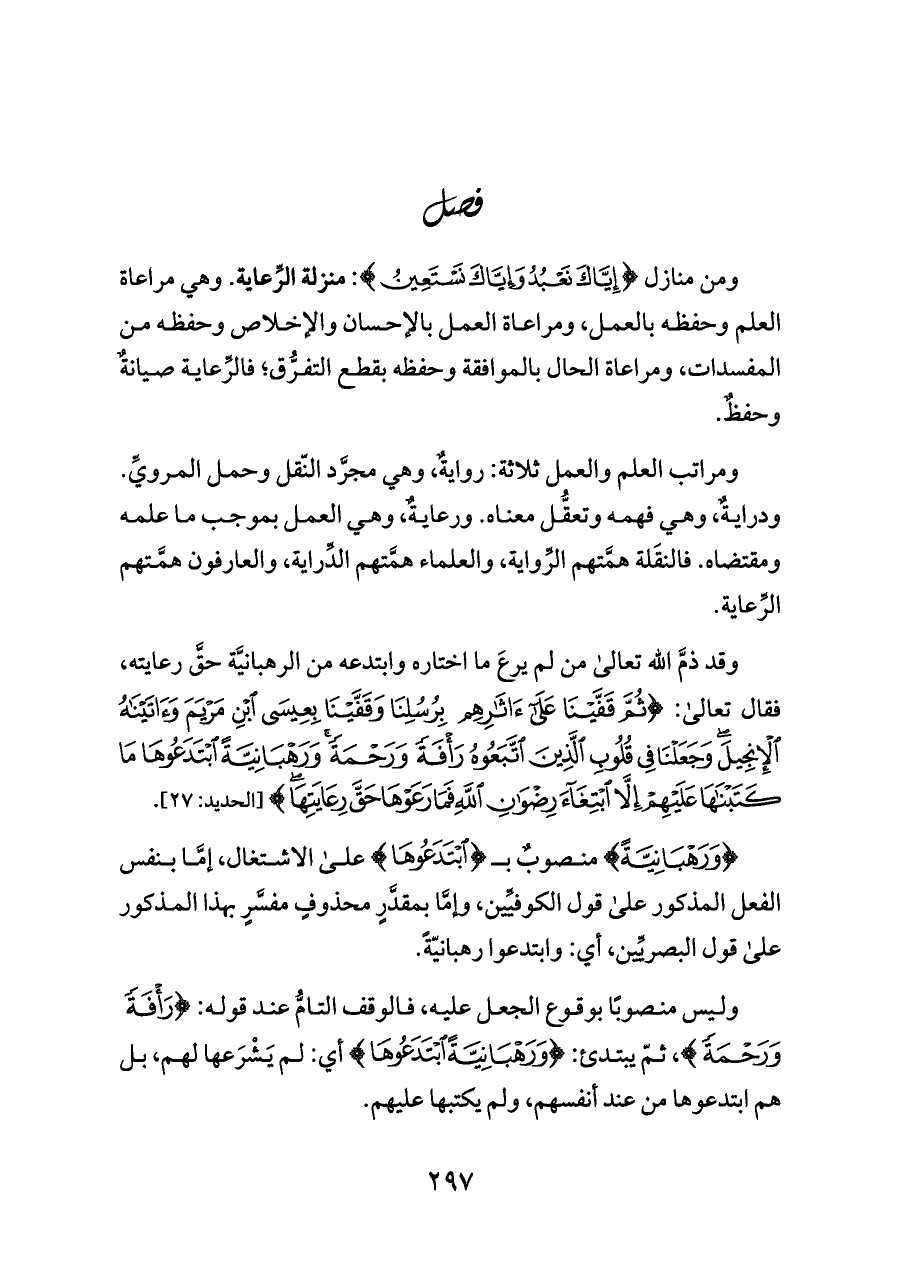 فصل
ومن منازل ﴿إِيَّاكَ نَعْبُدُ وَإِيَّاكَ نَسْتَعِينُ﴾: منزلة الرِّعاية. وهي مراعاة
العلم وحفظه بالعمل، ومراعاة العمل بالإحسان والإخلاص وحفظه من
المفسدات، ومراعاة الحال بالموافقة وحفظه بقطع التفرُّق؛ فالرِّعاية صيانةٌ
وحفظٌ.
ومراتب العلم والعمل ثلاثة: روايةٌ، وهي مجرَّد النّقل وحمل المرويِّ.
ودرايةٌ، وهي فهمه وتعقُّل معناه. ورعايةٌ، وهي العمل بموجب ما علمه
ومقتضاه. فالنقَلة همَّتهم الرِّواية، والعلماء همَّتهم الدِّراية، والعارفون همَّتهم
الرِّعاية.
وقد ذمَّ الله تعالىٰ من لم يرعَ ما اختاره وابتدعه من الرهبانيَّة حقَّ رعايته،
فقال تعالىٰ: ﴿ثُمَّ قَفَّيْنَا عَلَىٰٓ ءَاثَٰرِهِم بِرُسُلِنَا وَقَفَّيْنَا بِعِيسَى ٱبْنِ مَرْيَمَ وَءَاتَيْنَٰهُ
ٱلْإِنجِيلَۖ وَجَعَلْنَا فِي قُلُوبِ ٱلَّذِينَ ٱتَّبَعُوهُ رَأْفَةً وَرَحْمَةًۚ وَرَهْبَانِيَّةً ٱبْتَدَعُوهَا مَا
كَتَبْنَٰهَا عَلَيْهِمْ إِلَّا ٱبْتِغَآءَ رِضْوَٰنِ ٱللَّهِ فَمَا رَعَوْهَا حَقَّ رِعَايَتِهَاۖ﴾ [الحديد: ٢٧].
﴿وَرَهْبَانِيَّةً﴾ منصوبٌ بـ ﴿ٱبْتَدَعُوهَا﴾ علىٰ الاشتغال، إمَّا بنفس
الفعل المذكور علىٰ قول الكوفيِّين، وإمَّا بمقدَّرٍ محذوفٍ مفسَّرٍ بهذا المذكور
علىٰ قول البصريِّين، أي: وابتدعوا رهبانيّةً.
وليس منصوبًا بوقوع الجعل عليه، فالوقف التامُّ عند قوله: ﴿رَأْفَةً
وَرَحْمَةً﴾، ثمّ يبتدئ: ﴿وَرَهْبَانِيَّةً ٱبْتَدَعُوهَا﴾ أي: لم يَشْرَعها لهم، بل
هم ابتدعوها من عند أنفسهم، ولم يكتبها عليهم.
٢٩٧